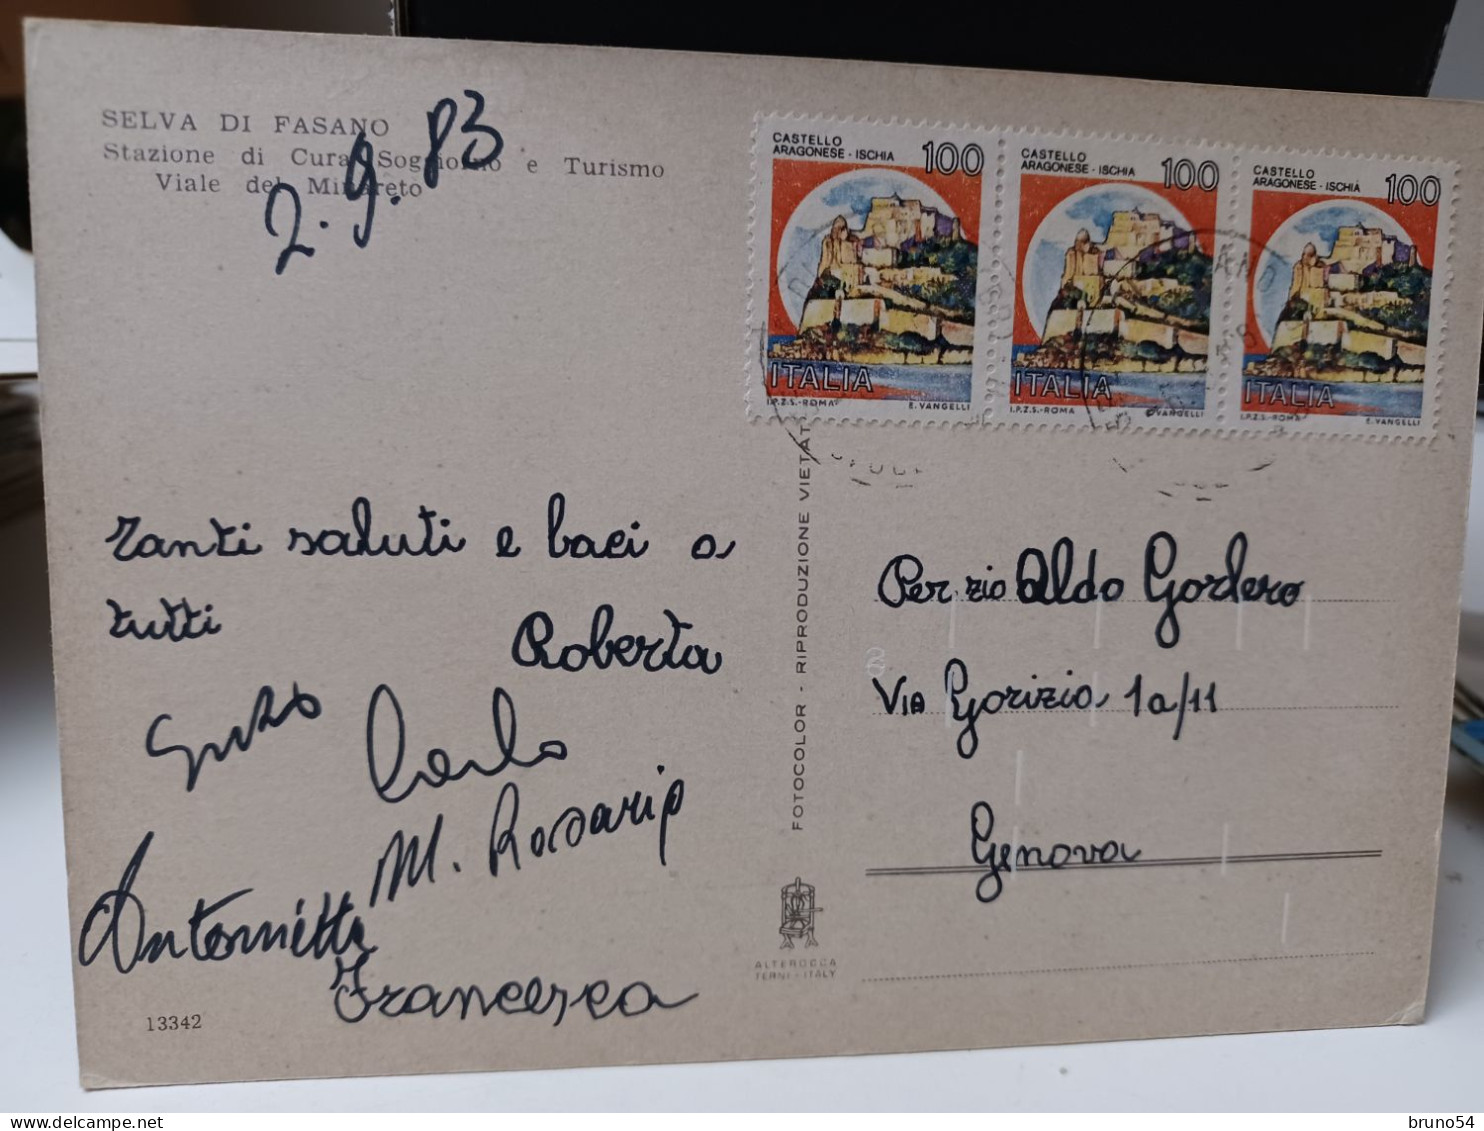 SELVA DI FASANO
Stazione di Cura Soggiorno e Turismo
Viale del Minareto
2.9.83
CASTELLO
ARAGONESE - ISCHIA
100
ITALIA
I.P.Z.S.-ROMA
E. VANGELLI
CASTELLO
ARAGONESE - ISCHIA
100
ITALIA
I.P.Z.S.-ROMA
E. VANGELLI
CASTELLO
ARAGONESE - ISCHIA
100
ITALIA
I.P.Z.S.-ROMA
E. VANGELLI
Tanti saluti e baci a
tutti
Roberta
Carlo
M. Rosaria
Antonietta
Francesca
13342
FOTOCOLOR - RIPRODUZIONE VIETAT
ALTEROCCA
TERNI - ITALY
Per zio Aldo Gordero
VIA Gorizia 1a/11
Genova
bruno54